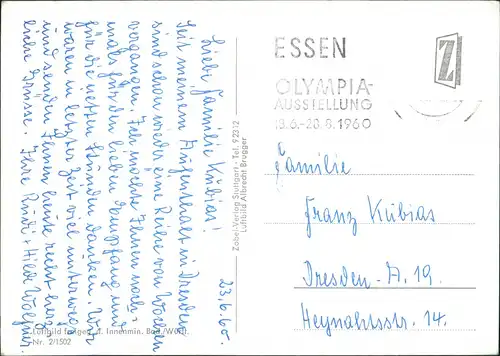 23.6.60.
Liebe Familie Kubias!
Seit meinem Aufenthalt in Dresden
sind schon wieder eine Reihe von Wochen
vergangen. Ich möchte Ihnen noch-
mals für den lieben Empfang und
für die netten Stunden danken. Wir
waren in letzter Zeit viel unterwegs
und senden Ihnen heute recht herz-
liche Grüsse. Ihre Rudi + Hilde
Zobel-Verlag Stuttgart · Tel. 92312
Luftbild Albrecht Brugger
Luftbild freigeg. d. Innenmin. Bad./Württ.
Nr. 2/1502
ESSEN
OLYMPIA-
AUSSTELLUNG
18.6.-28.8.1960
Z
Familie
Franz Kubias
Dresden-A. 19.
Heynahtsstr. 14.